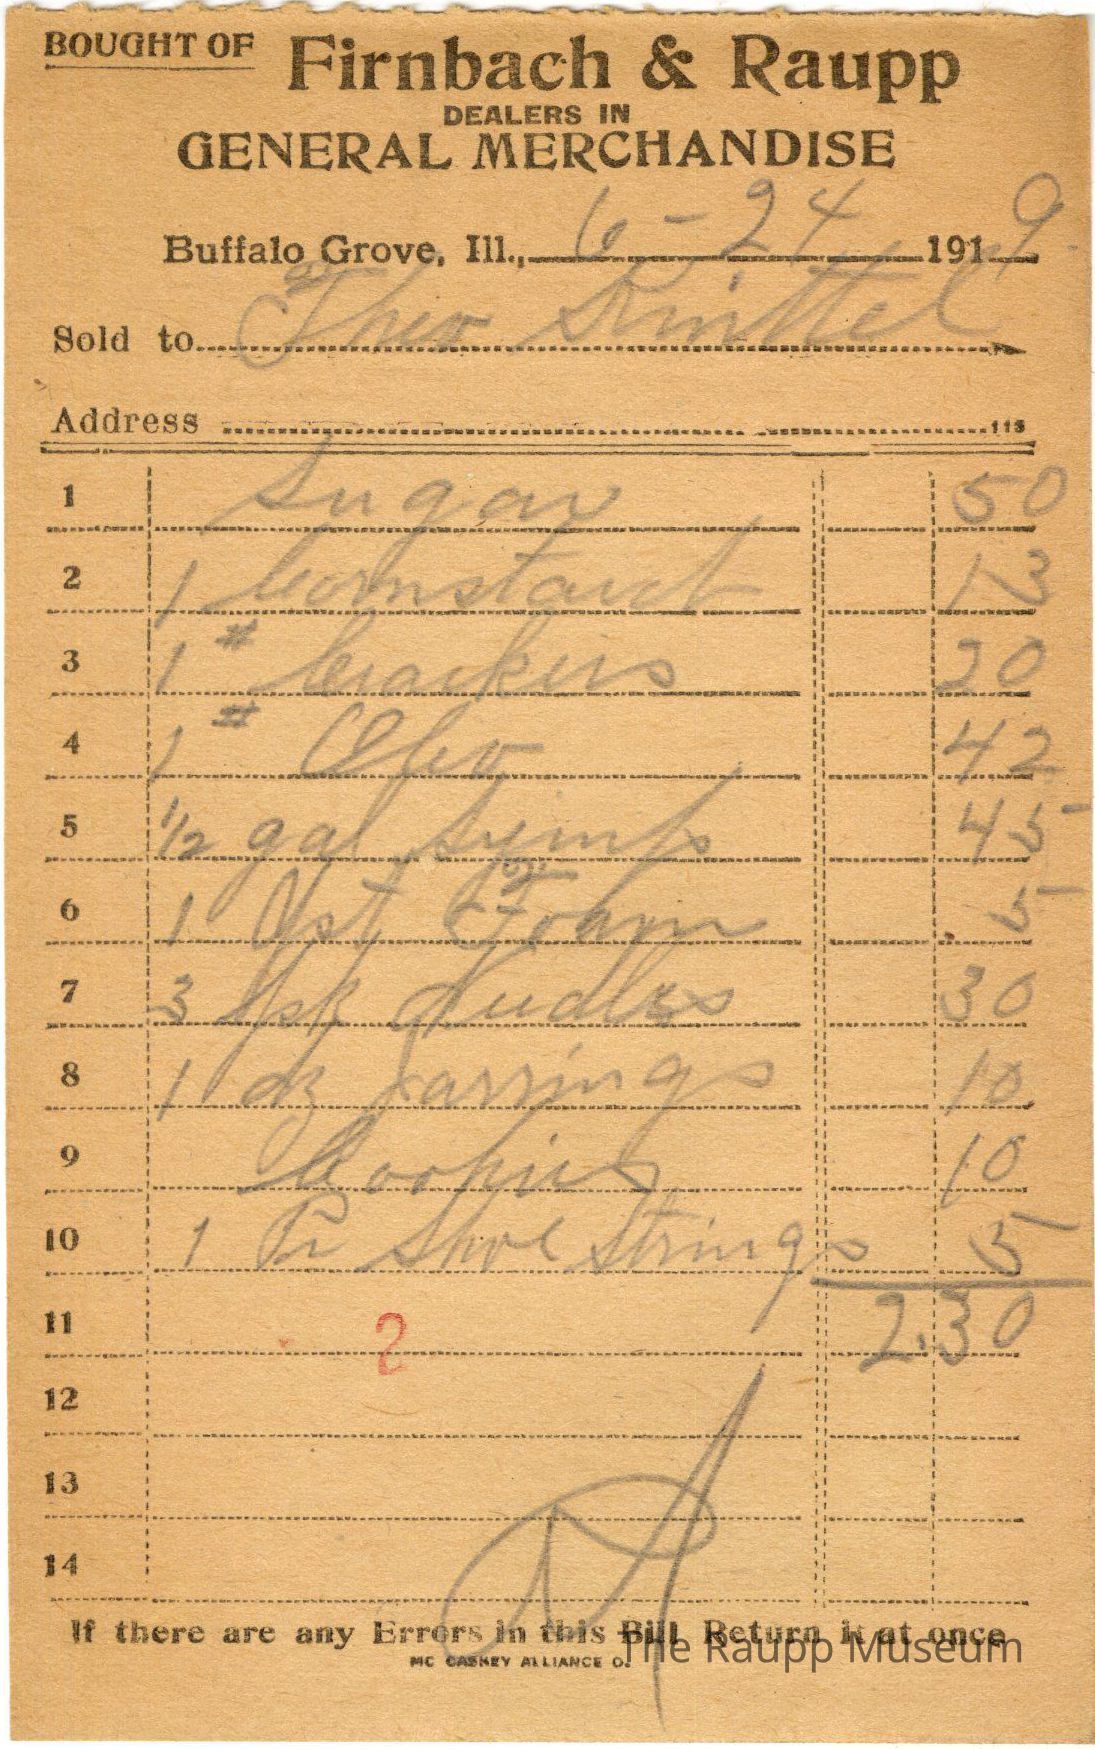 BOUGHT OF Firnbach & Raupp
DEALERS IN
GENERAL MERCHANDISE
Buffalo Grove, Ill., 6-24 1919.
Sold to Theo
Address 113
1 Sugar 50
2 1 Cornstarch 13
3 1 # Crackers 20
4 1 # Oleo 42
5 1/2 gal Syrup 45
6 1 Yst Foam 5
7 3 pk Nudles 30
8 1 dz Jarrings 10
9 Cookies 10
10 1 Pr Shoe Strings 5
11 2 2.30
12
13
14
If there are any Errors in this Bill Return it at once
MC CASKEY ALLIANCE O.
The Raupp Museum